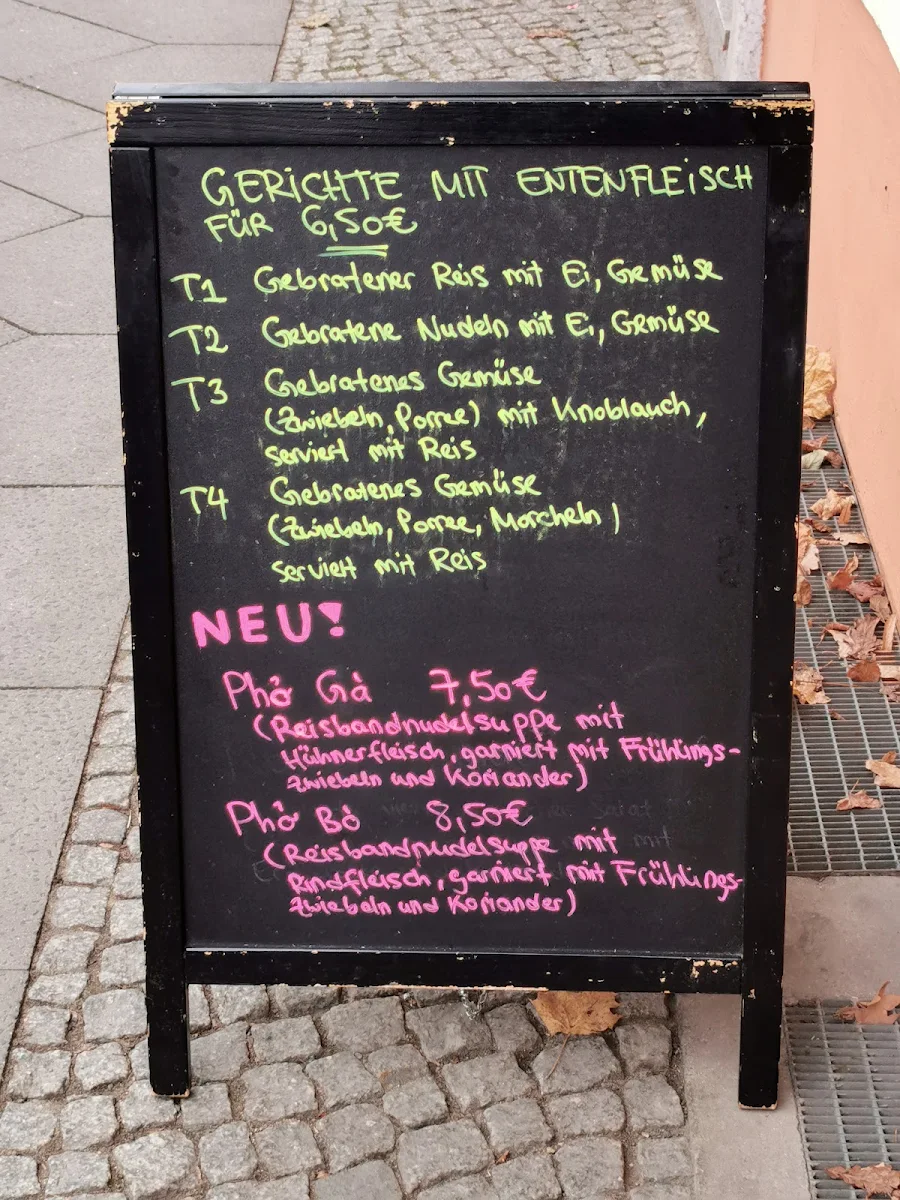 GERICHTE MIT ENTENFLEISCH
FÜR 6,50€
T1 Gebratener Reis mit Ei, Gemüse
T2 Gebratene Nudeln mit Ei, Gemüse
T3 Gebratenes Gemüse
(Zwiebeln, Porree) mit Knoblauch,
serviert mit Reis
T4 Gebratenes Gemüse
(Zwiebeln, Porree, Morcheln)
serviert mit Reis
NEU!
Phở Gà 7,50€
(Reisbandnudelsuppe mit
Hühnerfleisch, garniert mit Frühlings-
zwiebeln und Koriander)
Phở Bò 8,50€
(Reisbandnudelsuppe mit
Rindfleisch, garniert mit Frühlings-
zwiebeln und Koriander)